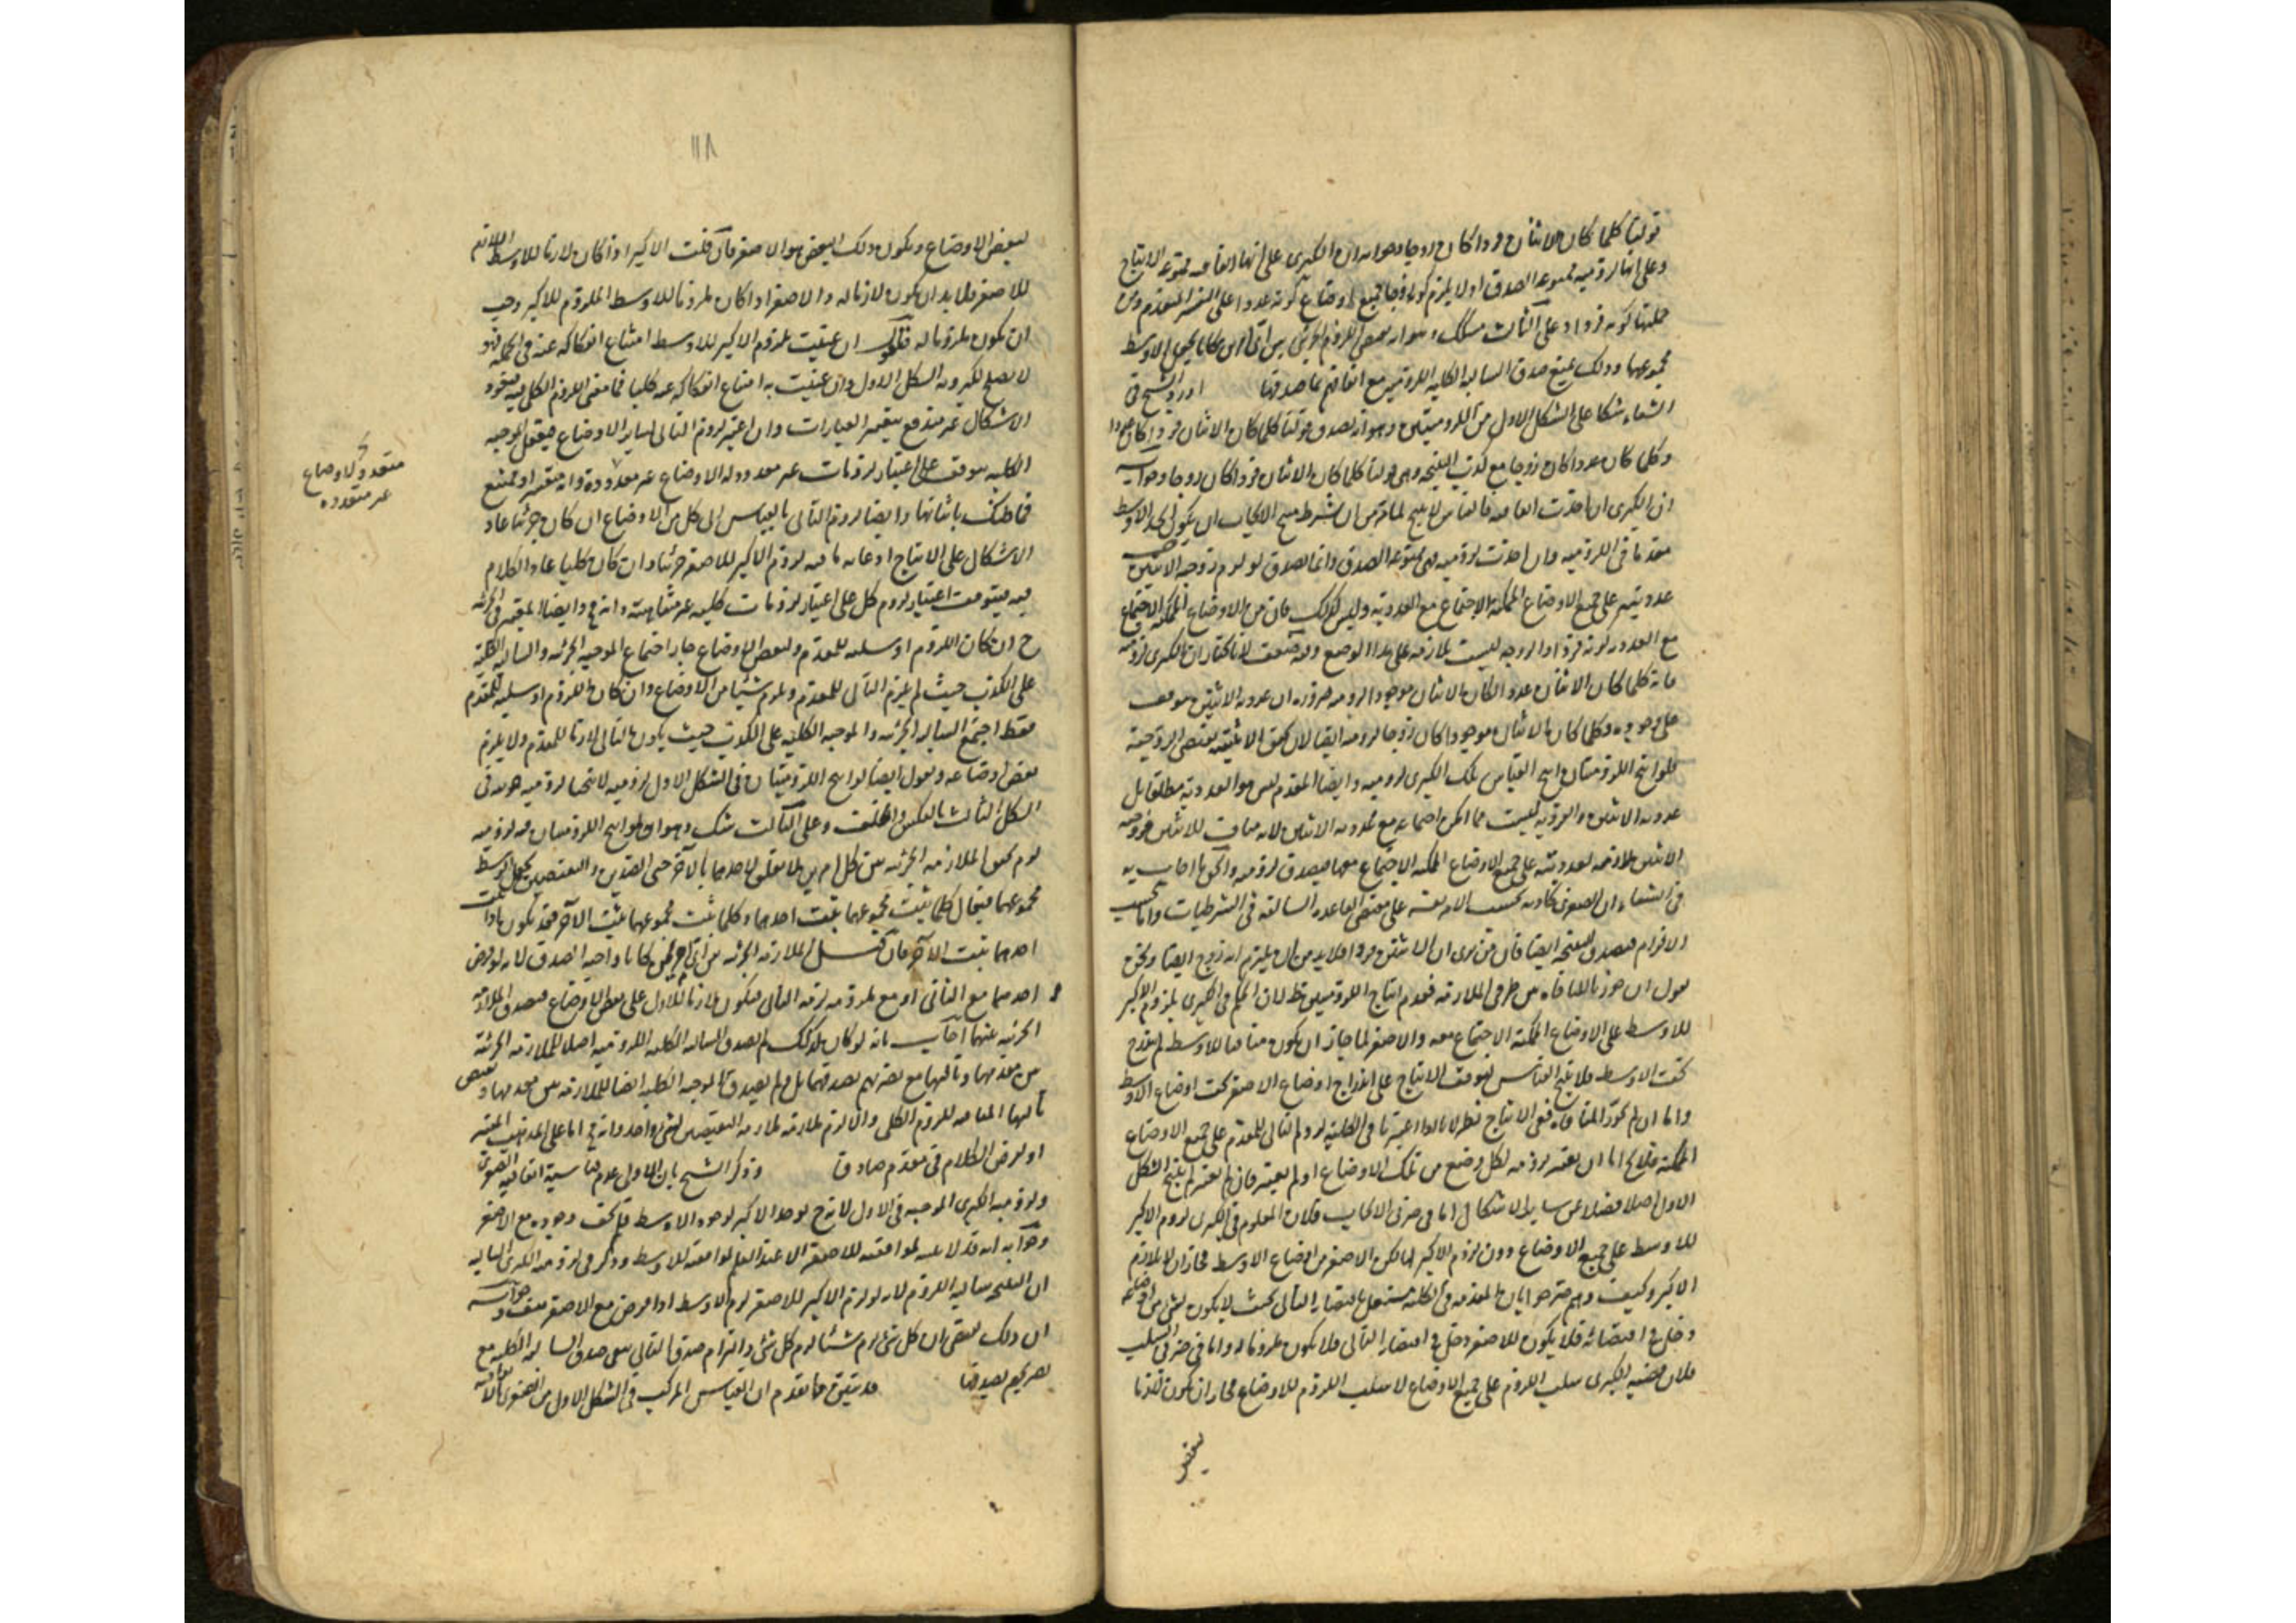 قولنا كلما كان الاثنان فردا كان زوجا وجوابه ان الكبرى على انها اتفاقيه ممنوعه الانتاج
وعلى انها لزوميه ممنوعه الصدق اذ لا يلزم كونه زوجا جميع اوضاع كونه عددا على التفسير المتقدم ومن
جملتها كونه فردا وعلى الثالث مسلك وهو انه يقتضى اللزوم الجزئى بين اى امرين كانا بجعل الاوسط
مجموعهما وذلك يمنع صدق السالبه الكليه اللزوميه مع اتفاقهم بما صدقها اورد الشيخ فى
الشفاء شكا على الشكل الاول من اللزوميتين وهو انه يصدق قولنا كلما كان الاثنان فردا كان عددا
وكلما كان عددا كان زوجا مع كذب النتيجه وهى قولنا كلما كان الاثنان فردا كان زوجا وجوابه
ان الكبرى ان اخذت اتفاقيه فالقياس لا ينتج لما مر من ان شرط منتج الايجاب ان يكون الحد الاوسط
مقدما فى اللزوميه وان اخذت لزوميه فهى ممنوعه الصدق وانما تصدق لو لزم زوجيه الاثنين
عدديته على جميع الاوضاع الممكنه الاجتماع مع العدديه وليس كذلك فان من الاوضاع الممكنه الاجتماع
مع العدديه كونه فردا والزوجيه ليست بلازمه على هذا الوضع وفيه ضعف لانا نختار ان الكبرى لزوميه
فانه كلما كان الاثنان عددا كان الاثنان موجودا لزوميه ضروره ان عدديه الاثنين موقوف
على وجوده وكلما كان الاثنان موجودا كان زوجا لزوميه ايضا لان تحقق الاثنينيه يقتضى الزوجيه
فلو انتج اللزوميتان انتج القياس تلك الكبرى لزوميه وايضا المقدم ليس هو العدديه مطلقا بل
عدديه الاثنين والفرديه ليست مما يمكن اجتماعه مع عدديه الاثنين لانه مناف للاثنين فزوجيه
الاثنين لازمه لعدديته على جميع الاوضاع الممكنه الاجتماع معها فيصدق لزوميه والحق ما اجاب به
فى الشفاء ان الصغرى كاذبه بحسب الامر نفسه على مقتضى القاعده السالفه فى الشرطيات واما بحسب
الالزام فيصدق النتيجه ايضا فان من يرى ان الاثنين فرد فلا بد من ان يلتزم انه زوج ايضا ونحن
نقول ان جوزنا المنافاه بين طرفى الملازمه فعدم انتاج اللزوميتين ظاهر لان الحكم فى الكبرى بلزوم الاكبر
للاوسط على الاوضاع الممكنه الاجتماع معه والاصغر لما جاز ان يكون منافيا للاوسط لم يندرج
تحت الاوسط فلا ينتج القياس لتوقف الانتاج على اندراج اوضاع الاصغر تحت اوضاع الاوسط
واما ان لم نجوز المنافاه ففى الانتاج نظر لانا اذا اعتبرنا فى الكليه لزوم التالى للمقدم على جميع الاوضاع
الممكنه فلا يخ اما ان يعتبر لزومه لكل وضع من تلك الاوضاع او لم يعتبر فان لم يعتبر لم ينتج الشكل
الاول اصلا فضلا عن ساير الاشكال اما فى ضربى الايجاب فلان المعلوم فى الكبرى لزوم الاكبر
للاوسط على جميع الاوضاع دون لزوم الاكبر لها لكن الاصغر من اوضاع الاوسط فجاز ان لا يلازم
الاكبر وكيف وهم صرحوا بان المقدم فى الكليه مستقل باقتضاء التالى بحيث لا يكون لشى من اوضاعه
دخل فى اقتضائه فلا يكون للاصغر دخل فى اقتضاء التالى فلا يكون ملزوما له واما فى ضربى السلب
فلان قضيه الكبرى سلب اللزوم على جميع الاوضاع لا سلب اللزوم للاوضاع فجاز ان يكون لازما
لبعض
١١٨
لبعض الاوضاع ويكون ذلك البعض هو الاصغر فان قلت الاكبر اذا كان لازما للاوسط اللازم
للاصغر فلا بد ان يكون لازما له والاصغر اذا كان ملزوما للاوسط الملزوم للاكبر وجب
ان يكون ملزوما له فنقول ان عنيت بلزوم الاكبر للاوسط امتناع انفكاكه عنه فى الجمله فهو
لا يصلح لكبرويه الشكل الاول وان عنيت به امتناع انفكاكه عنه كليا فما معنى اللزوم الكلى فيه فيعود
الاشكال غير مندفع بتغيير العبارات وان اعتبر لزوم التالى لساير الاوضاع فتعقل الموجبه
الكليه موقوف على اعتبار لزومات غير معدوده لاوضاع غير معدوده وانه متعسر او ممتنع
متعدده لاوضاع
غير متعدده
فما ظنك باثباتها وايضا لزوم التالى بالقياس الى كل من الاوضاع ان كان جزئيا عاد
الاشكال على الانتاج اذ غايه ما فيه لزوم الاكبر للاصغر جزئيا وان كان كليا عاد الكلام
فيه فيتوقف اعتبار لزوم كلى على اعتبار لزومات كليه غير متناهيه وانه مح وايضا المعتبر فى الجزئيه
ح ان كان اللزوم او سلبه للمقدم ولبعض الاوضاع جاز اجتماع الموجبه الجزئيه والسالبه الكليه
على الكذب حيث لم يلزم التالى للمقدم ويلزم شيئا من الاوضاع وان كان اللزوم او سلبه للمقدم
فقط اجتمع السالبه الجزئيه والموجبه الكليه على الكذب حيث يكون التالى لازما للمقدم ولا يلزم
بعض اوضاعه ونقول ايضا لو انتج اللزوميتان فى الشكل الاول لزوميه لانتجا لزوميه جزئيه فى
الشكل الثالث بالعكس والخلف وعلى الثالث شك وهو انه لو انتج اللزوميتان فيه لزوميه
لزم تحقق الملازمه الجزئيه بين كل امرين لا تعلق لاحدهما بالآخر حتى الضدين والنقيضين بجعل الاوسط
مجموعهما فيقال كلما ثبت مجموعهما ثبت احدهما وكلما ثبت مجموعهما ثبت الآخر فقد يكون اذا ثبت
احدهما ثبت الآخر فان قيل الملازمه الجزئيه بين اى امرين كانا واجبه الصدق لانه لو فرض
احدهما مع الثانى او مع ملزومه لزمه الثانى فيكون لازما للاول على بعض الاوضاع فيصدق الملازمه
الجزئيه بينهما اجاب بانه لو كان كذلك لم يصدق السالبه الكليه اللزوميه اصلا للملازمه الجزئيه
بين مقدمها وتاليها مع تصريحهم بصدقها بل ولم يصدق الموجبه الكليه ايضا للملازمه بين مقدمها ونقيض
تاليها المنافيه للزوم الكلى وانه لزم ملازمه النقيضين لشى واحد وانه مح اما على المذهب المعتبر
او لفرض الكلام فى مقدم صادق وذكر الشيخ بان الاول عديم المناسبه اتفاقيه الصغرى
ولزوميه الكبرى الموجبه فى الاول لا ينتج لوجود الاكبر لوجود الاوسط فلم تخف وجوده مع الاصغر
وجوابه انه قد لا ينتبه لموافقته للاصغر الا عند العلم بموافقته للاوسط وذكر فى لزوميه الكبرى السالبه
ان النتيجه سالبه اللزوم لانه لو لزم الاكبر للاصغر لزم الاوسط اذا فرض مع الاصغر هف وجوابه
ان ذلك يقتضى ان كل شى لزم شيئا لزم كل شى والتزام صدق التالى ينفى صدق السالبه الكليه مع
تصريحهم بصدقها قد تبين مما تقدم ان القياس المركب فى الشكل الاول من الصغرى الاتفاقيه